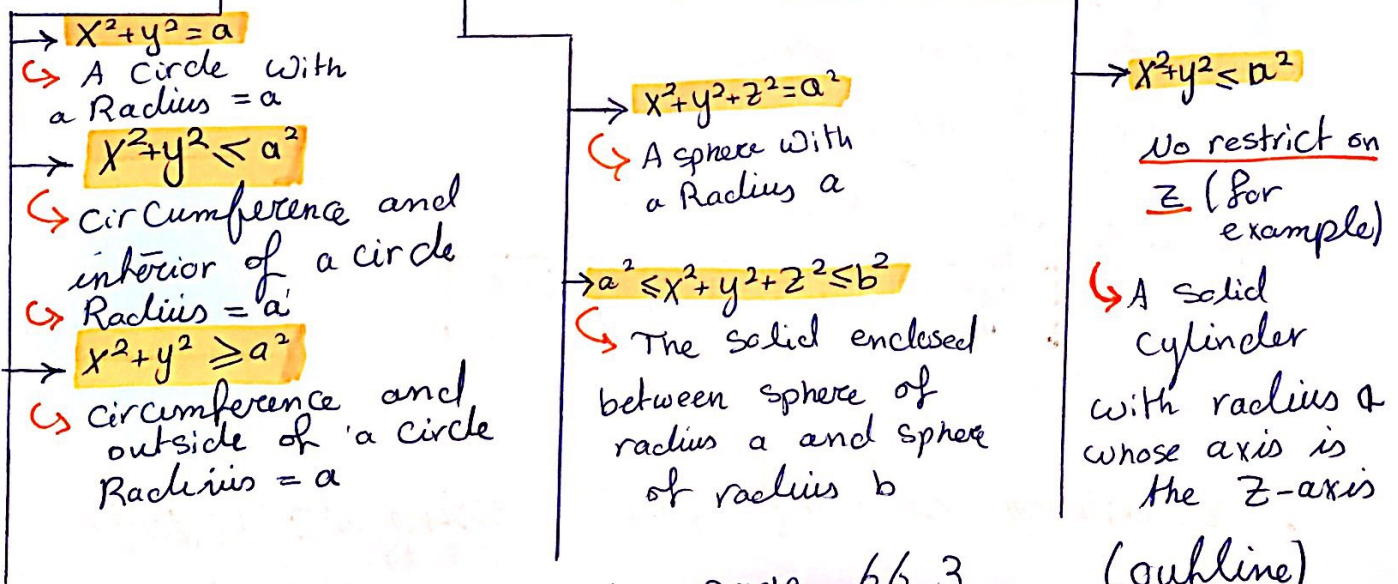 x²+y²=a
A circle with
a Radius = a
x²+y² ≤ a²
circumference and
interior of a circle
Radius = a
x²+y² ≥ a²
circumference and
outside of a circle
Radius = a
x²+y²+z²=a²
A sphere with
a Radius a
a² ≤ x²+y²+z² ≤ b²
The solid enclosed
between sphere of
radius a and sphere
of radius b
x²+y² ≤ a²
No restrict on
z (for
example)
A solid
cylinder
with radius a
whose axis is
the z-axis
66 3
(outline)